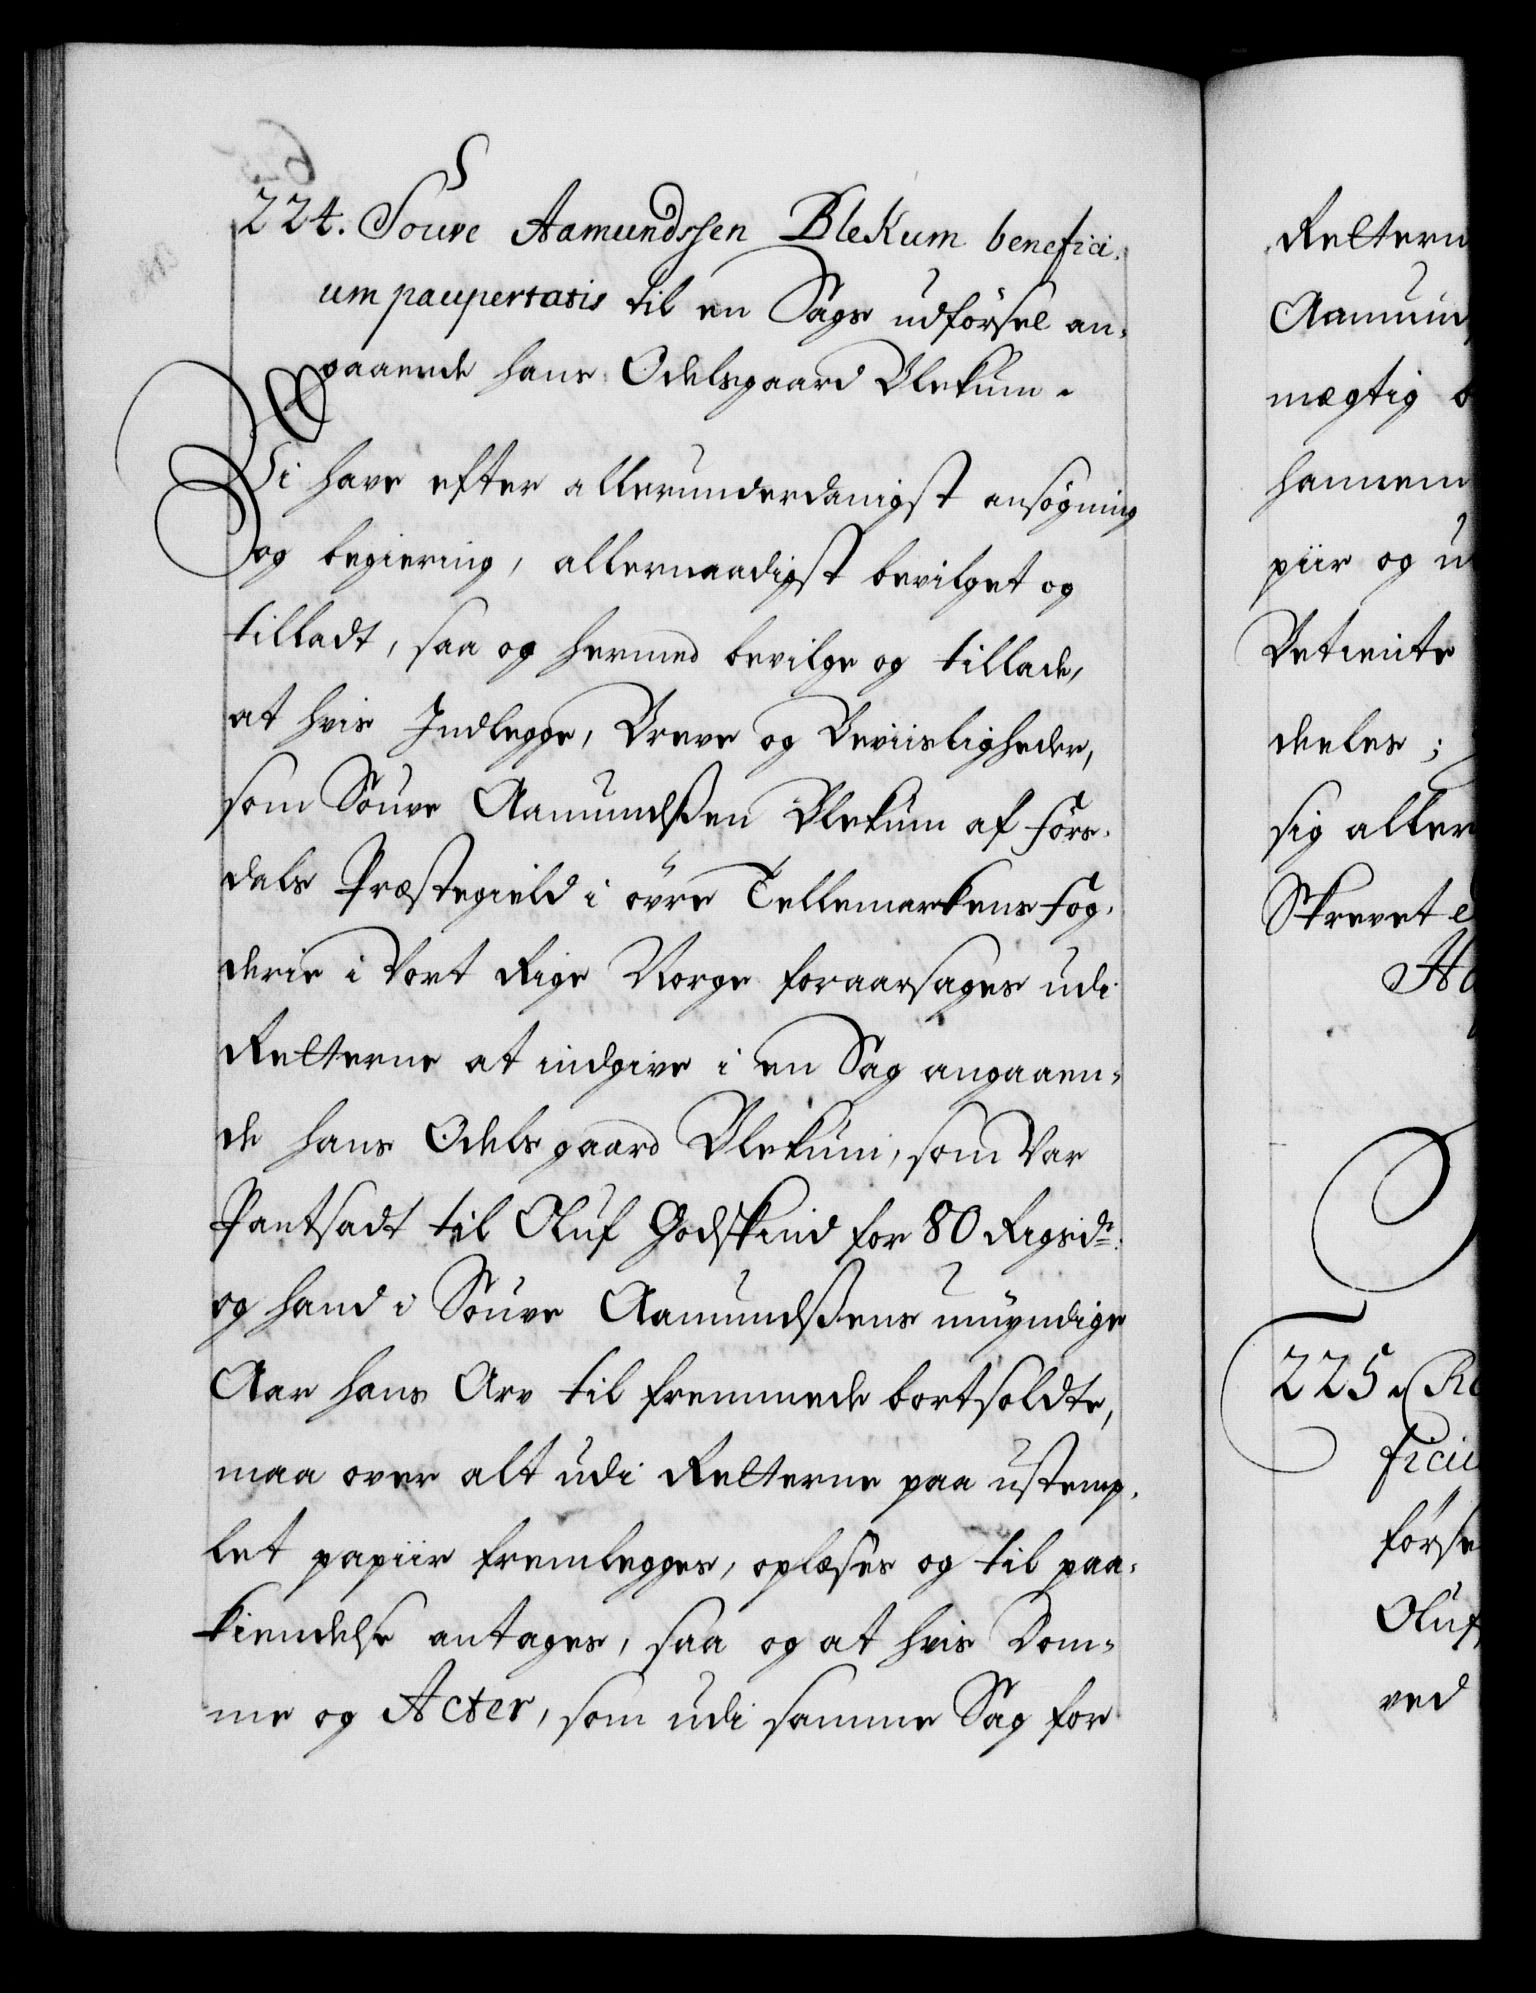 224. Souve Aamundssen Blekum benefici-
um paupertatis til en Sags udførsel an-
gaaende hans Odelsgaard Blekum.
Vi have efter allerunderdanigst ansøgning
og begiering, allernaadigst bevilget og
tilladt, saa og hermed bevilge og tillade,
at hvis Indlegge, Breve og Beviisligheder,
som Souve Aamundssen Blekum af Førs-
dals Præstegield i øvre Tellemarkens Fog-
derie i Vort Rige Norge foraarsages udi
Retterne at indgive i en Sag angaaen-
de hans Odelsgaard Blekum, som Var
Pantsadt til Oluf Godskind for 80 Rigsdr:
og hand i Souve Aamundssens umyndige
Aar hans Arv til fremmede bortsoldte,
maa over alt udi Retterne paa ustemp-
let papiir fremlegges, oplæses og til paa-
kiendelse antages, saa og at hvis Dom-
me og Acter, som udi samme Sag for
Rettern
Aamund
mægtig
hannem
piir og u
Betiente
deeles;
sig aller
Skrevet
225.
ficiu
førse
Oluf
ved